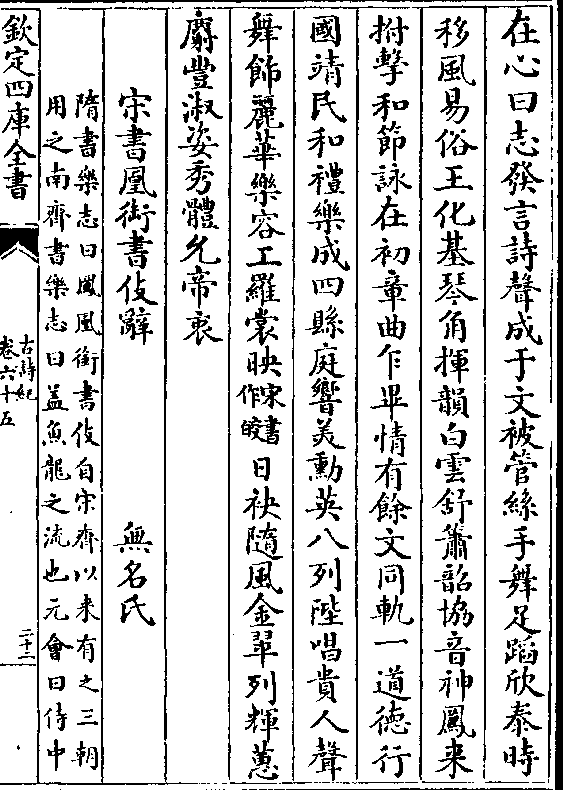 在心曰志發言詩聲成于文被管絲手舞足蹈欣泰時
移風易俗王化基琴角揮韻白雲舒簫韶協音神鳳来
拊擊和節詠在初章曲乍畢情有餘文同軌一道徳行
國靖民和禮樂成四縣庭響美勳英八列陛唱貴人聲
舞飾麗華樂容工羅裳映宋書作皎日袂隨風金翠列輝蕙
麝豐淑姿秀體允帝衷
宋書鳳銜書伎辭 無名氏
隋書樂志曰鳳凰銜書伎自宋齊以来有之三朝
用之南齊書樂志曰盖魚龍之流也元會日侍中
欽定四庫全書
古詩紀
卷六十五
二十二